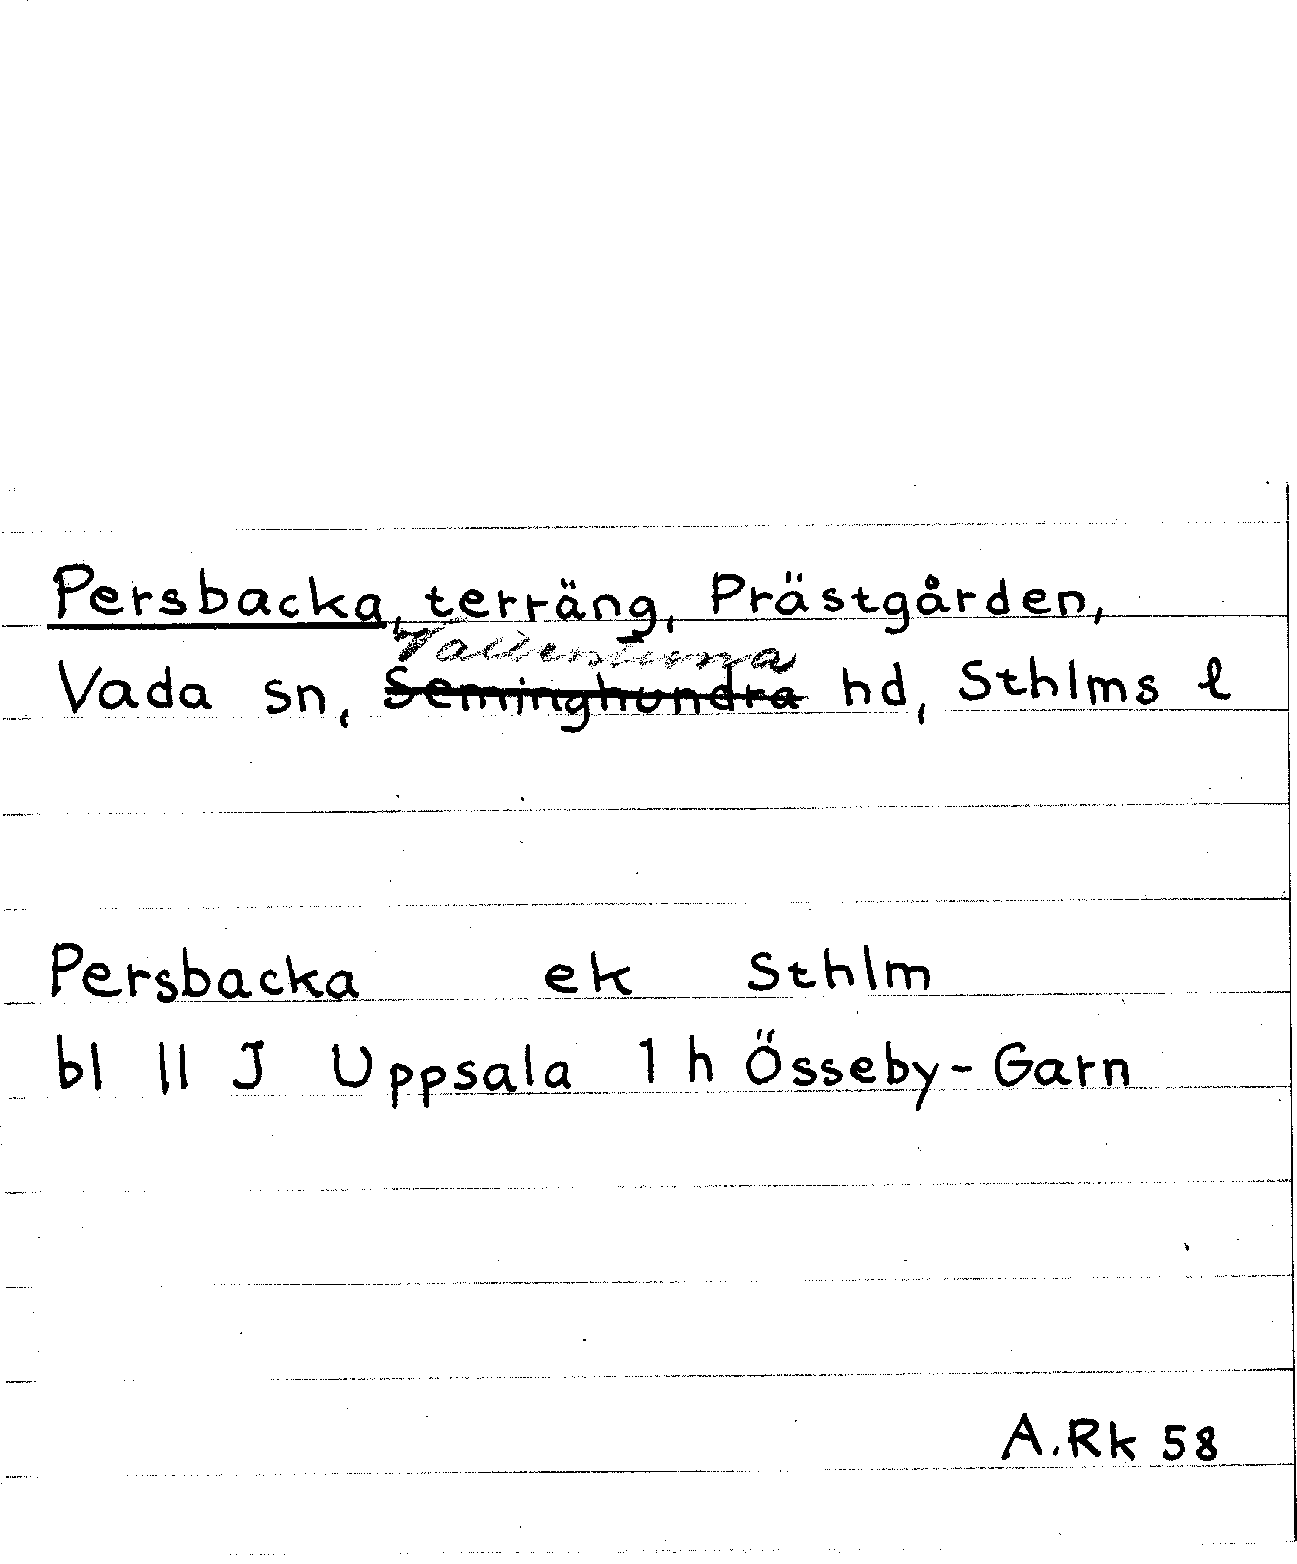 Persbacka, terräng, Prästgården,
Vallentuna
Vada sn, Seminghundra hd, Sthlms l
Persbacka ek Sthlm
bl 11 J Uppsala 1 h Össeby-Garn
A.Rk 58